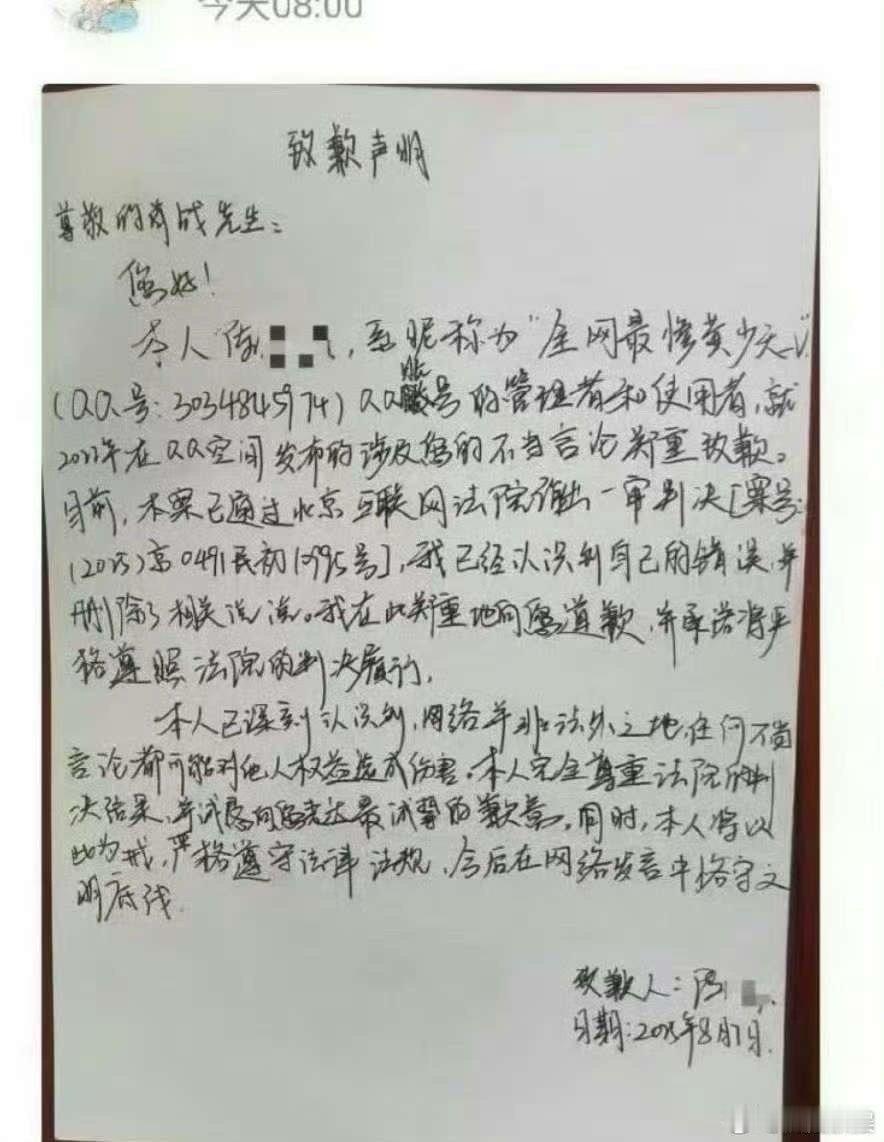 今天08:00
致歉声明
尊敬的肖战先生：
您好！
本人陈，系昵称为“全网最惨黄少天_V”
（QQ号：3034845974）QQ账号的管理者和使用者，就
2022年在QQ空间发布的涉及您的不当言论郑重致歉。
目前，本案已通过北京互联网法院作出一审判决[案号：
(2025)京0491民初1995号]，我已经认识到自己的错误，并
删除了相关说说。我在此郑重地向您道歉，并承诺将严
格遵照法院的判决履行。
本人已深刻认识到，网络并非法外之地，任何不当
言论都可能对他人权益造成伤害。本人完全尊重法院的判
决结果，并诚恳向您表达最诚挚的歉意。同时，本人将以
此为戒，严格遵守法律法规，今后在网络发言中恪守文
明底线.
致歉人：陈
日期：2025年8月7日.